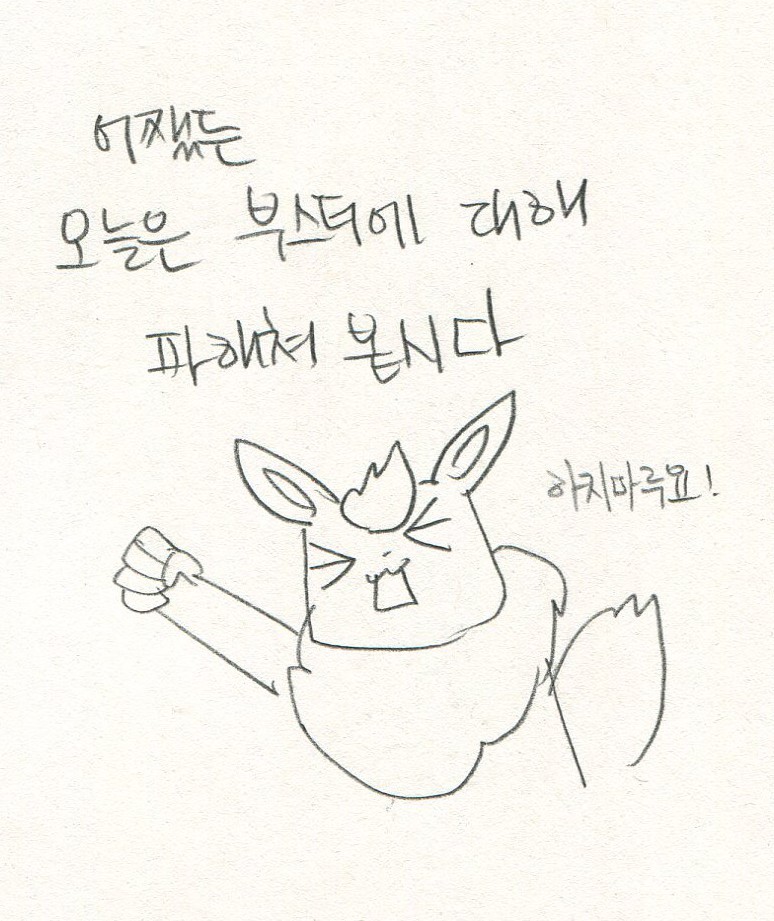 어쨌든
오늘은 부스터에 대해
파해쳐 봅시다
하지마루요!